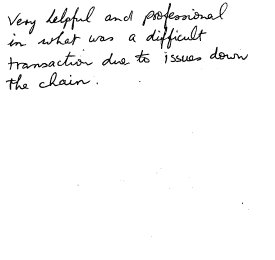 Very helpful and professional
in what was a difficult
transaction due to issues down
the chain.